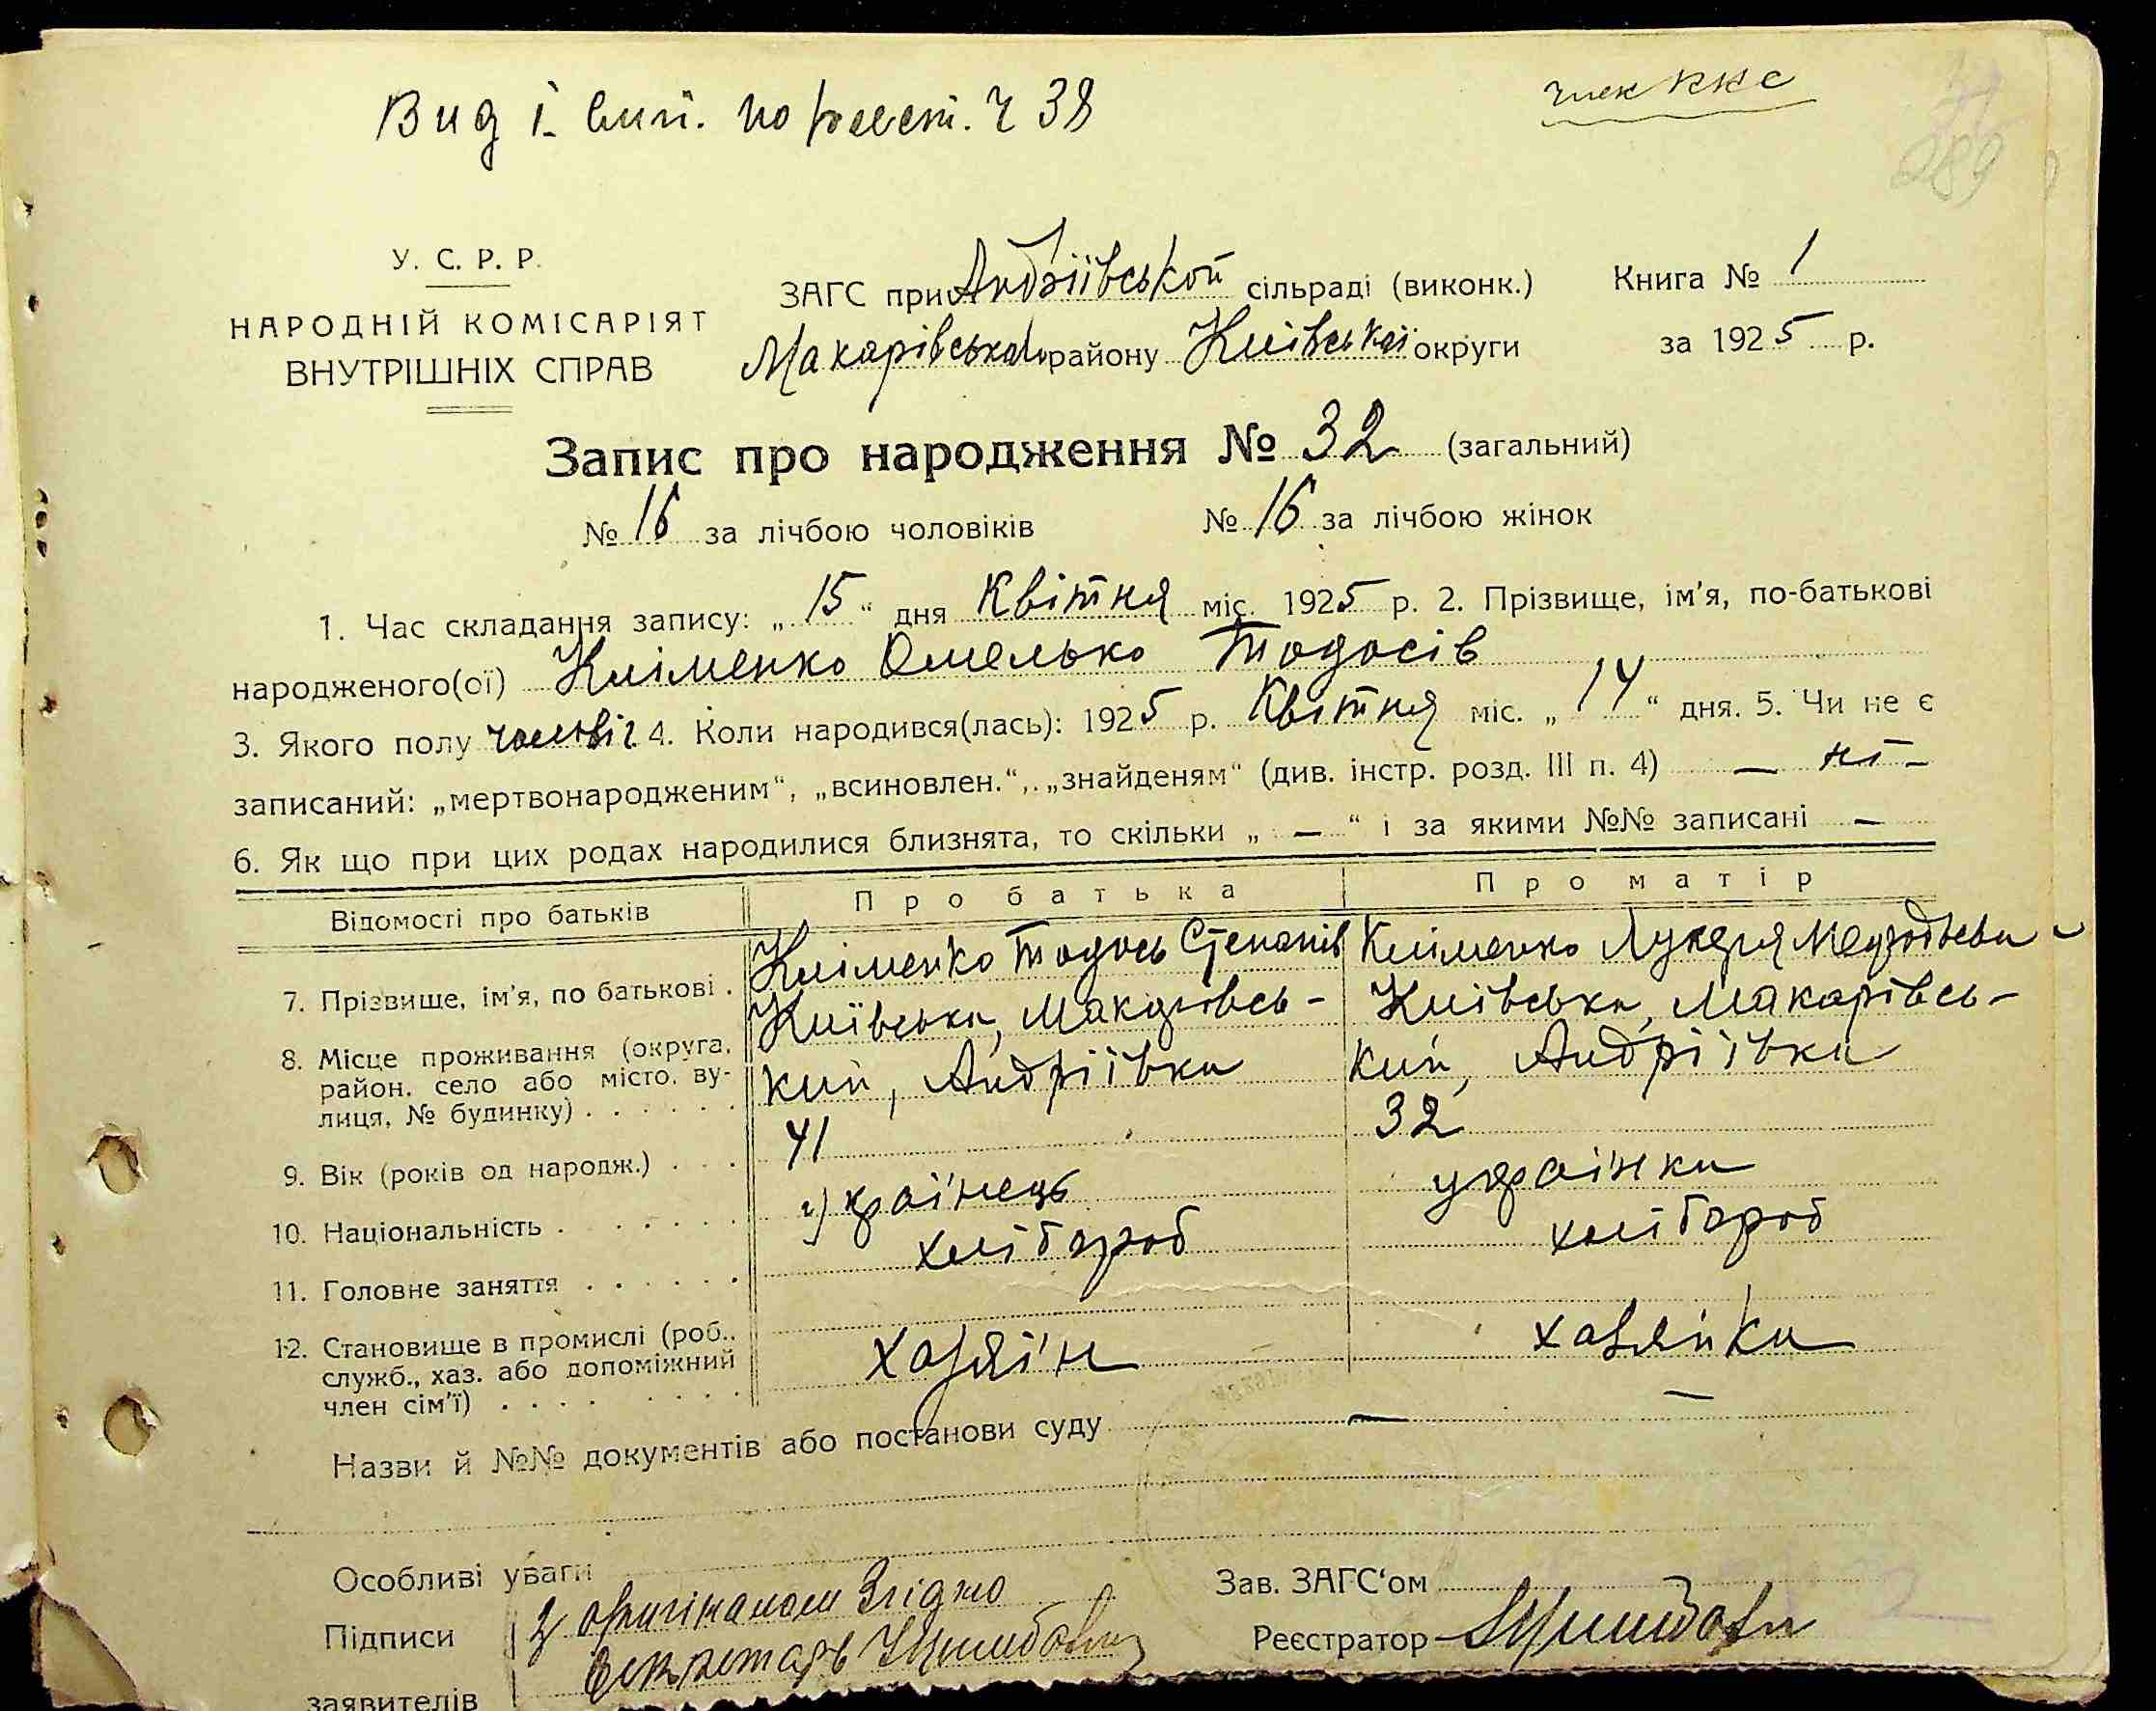 Вид і вип. по реест. Ч 38
член ККС
289
У. С. Р. Р.
НАРОДНІЙ КОМІСАРІЯТ
ВНУТРІШНІХ СПРАВ
ЗАГС при Андріївській сільраді (виконк.)
Макарівськ. району Київської округи
Книга № 1
за 1925 р.
Запис про народження № 32 (загальний)
№ 16 за лічбою чоловіків № 16 за лічбою жінок
1. Час складання запису: „ 15 “ дня Квітня міс. 1925 р. 2. Прізвище, ім'я, по-батькові
народженого(ої) Кліменко Омелько Тодосів
3. Якого полу чоловіч. 4. Коли народився(лась): 1925 р. Квітня міс. „ 14 “ дня. 5. Чи не є
записаний: „мертвонародженим“, „всиновлен.“, „знайденям“ (див. інстр. розд. III п. 4) — ні —
6. Як що при цих родах народилися близнята, то скільки „ — “ і за якими №№ записані —
Відомості про батьків Про батька Про матір
7. Прізвише, ім'я, по батькові . Кліменко Тодось Степанів Кліменко Лукеря
8. Місце проживання (округа, район, село або місто, вулиця, № будинку) . . . . . .
Київська, Макарівсь- Київська, Макарівсь-
кий, Андріївка кий, Андріївка
9. Вік (років од народж.) . . . 41 32
10. Національність . . . . . . . українець українка
11. Головне заняття . . . . . . хлібороб хлібороб
12. Становище в промислі (роб.,
служб., хаз. або допоміжний
член сім'ї) . . . . . . . . хазяїн хазяйка
Назви й №№ документів або постанови суду — —
Особливі уваги
Підписи
заявителів
З оригіналом Згідно
Секретарь
Зав. ЗАГС'ом
Реєстратор